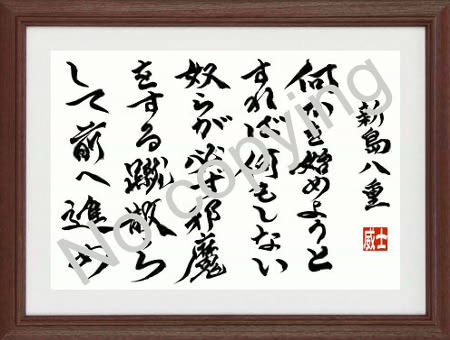 新島八重
何かを始めようと
すれば何もしない
奴らが必ず邪魔
をする蹴散ら
して前へ進め
威士
No copying